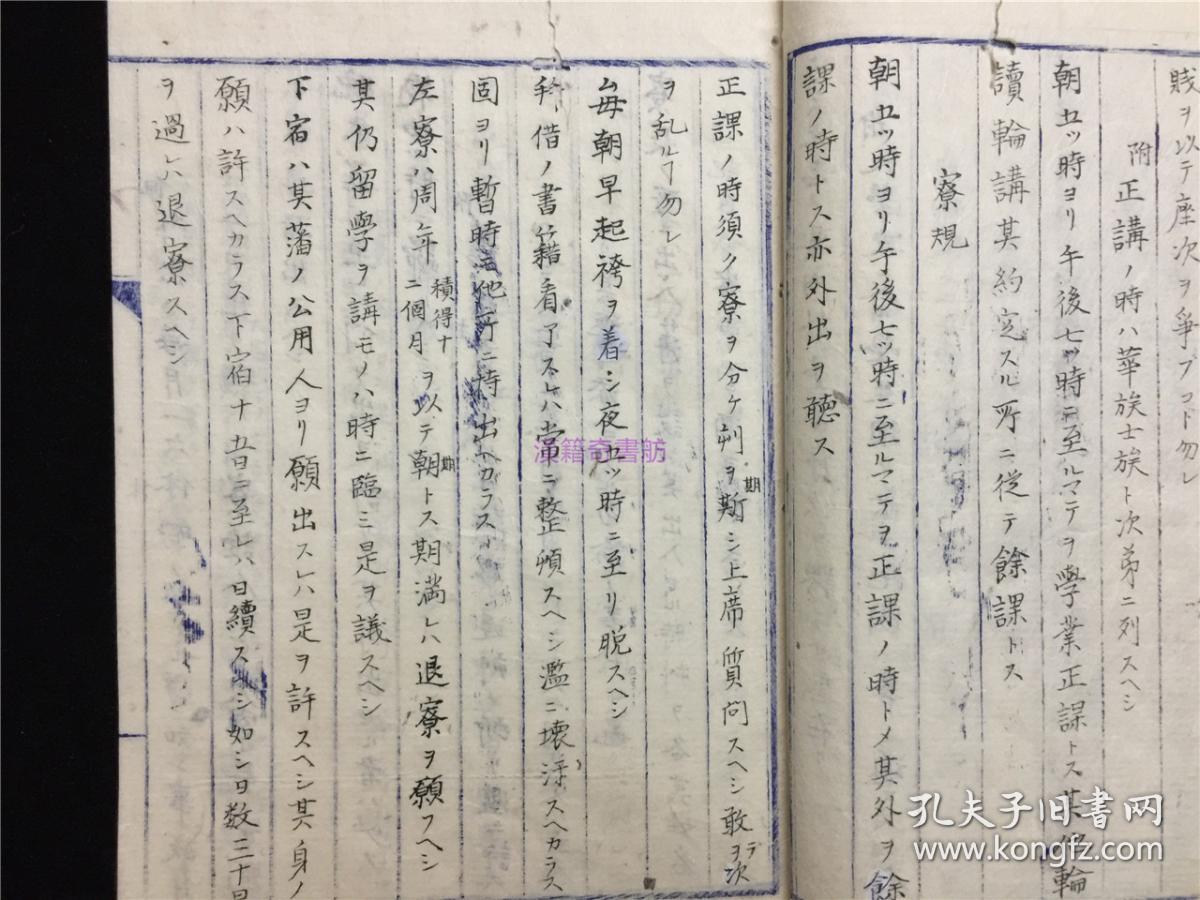 賎ヲ以テ座次ヲ爭フコト勿レ
附正講ノ時ハ華族士族ト次第ニ列スヘシ
朝五ツ時ヨリ午後七ツ時ニ至ルマテヲ學業正課トス其他輪
讀輪講其約定スル所ニ從テ餘課トス
寮規
朝五ツ時ヨリ午後七ツ時ニ至ルマテヲ正課ノ時トメ其外ヲ餘
課ノ時トス亦外出ヲ聴ス
正課ノ時須ク寮ヲ分ケ刻ヲ斯期シ上席質問スヘシ敢テ次
ヲ乱ルヿ勿レ
毎朝早起袴ヲ着シ夜五ツ時ニ至リ脱スヘシ
拝借ノ書籍看了スレハ當ニ整頓スヘシ濫ニ壊浮スヘカラス
固ヨリ暫時モ他所ニ持出ヘカラス
左寮ハ周年積得十二個月ヲ以テ朝期トス期満レハ退寮ヲ願フヘシ
其仍留学ヲ講モノハ時ニ臨ミ是ヲ議スヘシ
下宿ハ其藩ノ公用人ヨリ願出スレハ是ヲ許スヘシ其身ノ
願ハ許スヘカラス下宿十五日ニ至レハ日續スヘシ如シ日数三十日
ヲ過レハ退寮スヘシ
漢籍奇書舫
孔夫子旧书网
www.kongfz.com